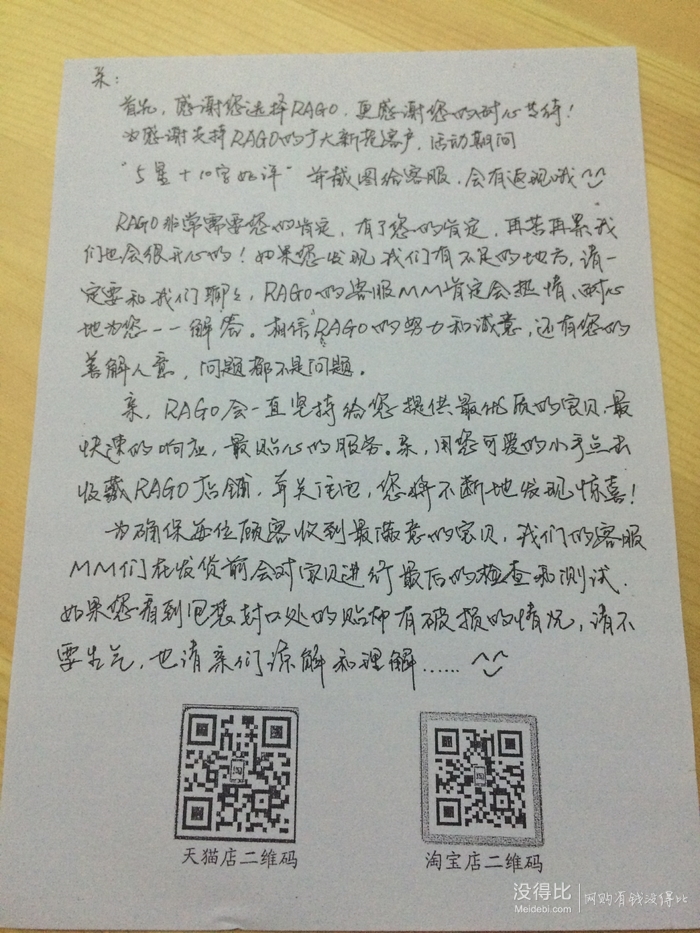 亲：
首先，感谢您选择RAGO，更感谢您的耐心等待！
为感谢支持RAGO的广大新老客户，活动期间
“5星+10字好评”并截图给客服，会有返现哦^_^
RAGO非常需要您的肯定，有了您的肯定，再苦再累我
们也会很开心的！如果您发现我们有不足的地方，请一
定要和我们聊聊，RAGO的客服MM肯定会热情、耐心
地为您一一解答。相信RAGO的努力和诚意，还有您的
善解人意，问题都不是问题。
亲，RAGO会一直坚持给您提供最优质的宝贝、最
快速的响应，最贴心的服务。亲，用您可爱的小手点击
收藏RAGO店铺，并关注它，您将不断地发现惊喜！
为确保每位顾客收到最满意的宝贝，我们的客服
MM们在发货前会对宝贝进行最后的检查和测试.
如果您看到包装封口处的贴纸有破损的情况，请不
要生气，也请亲们谅解和理解……^_^
天猫店二维码
淘宝店二维码
没得比 网购有钱没得比
Meidebi.com